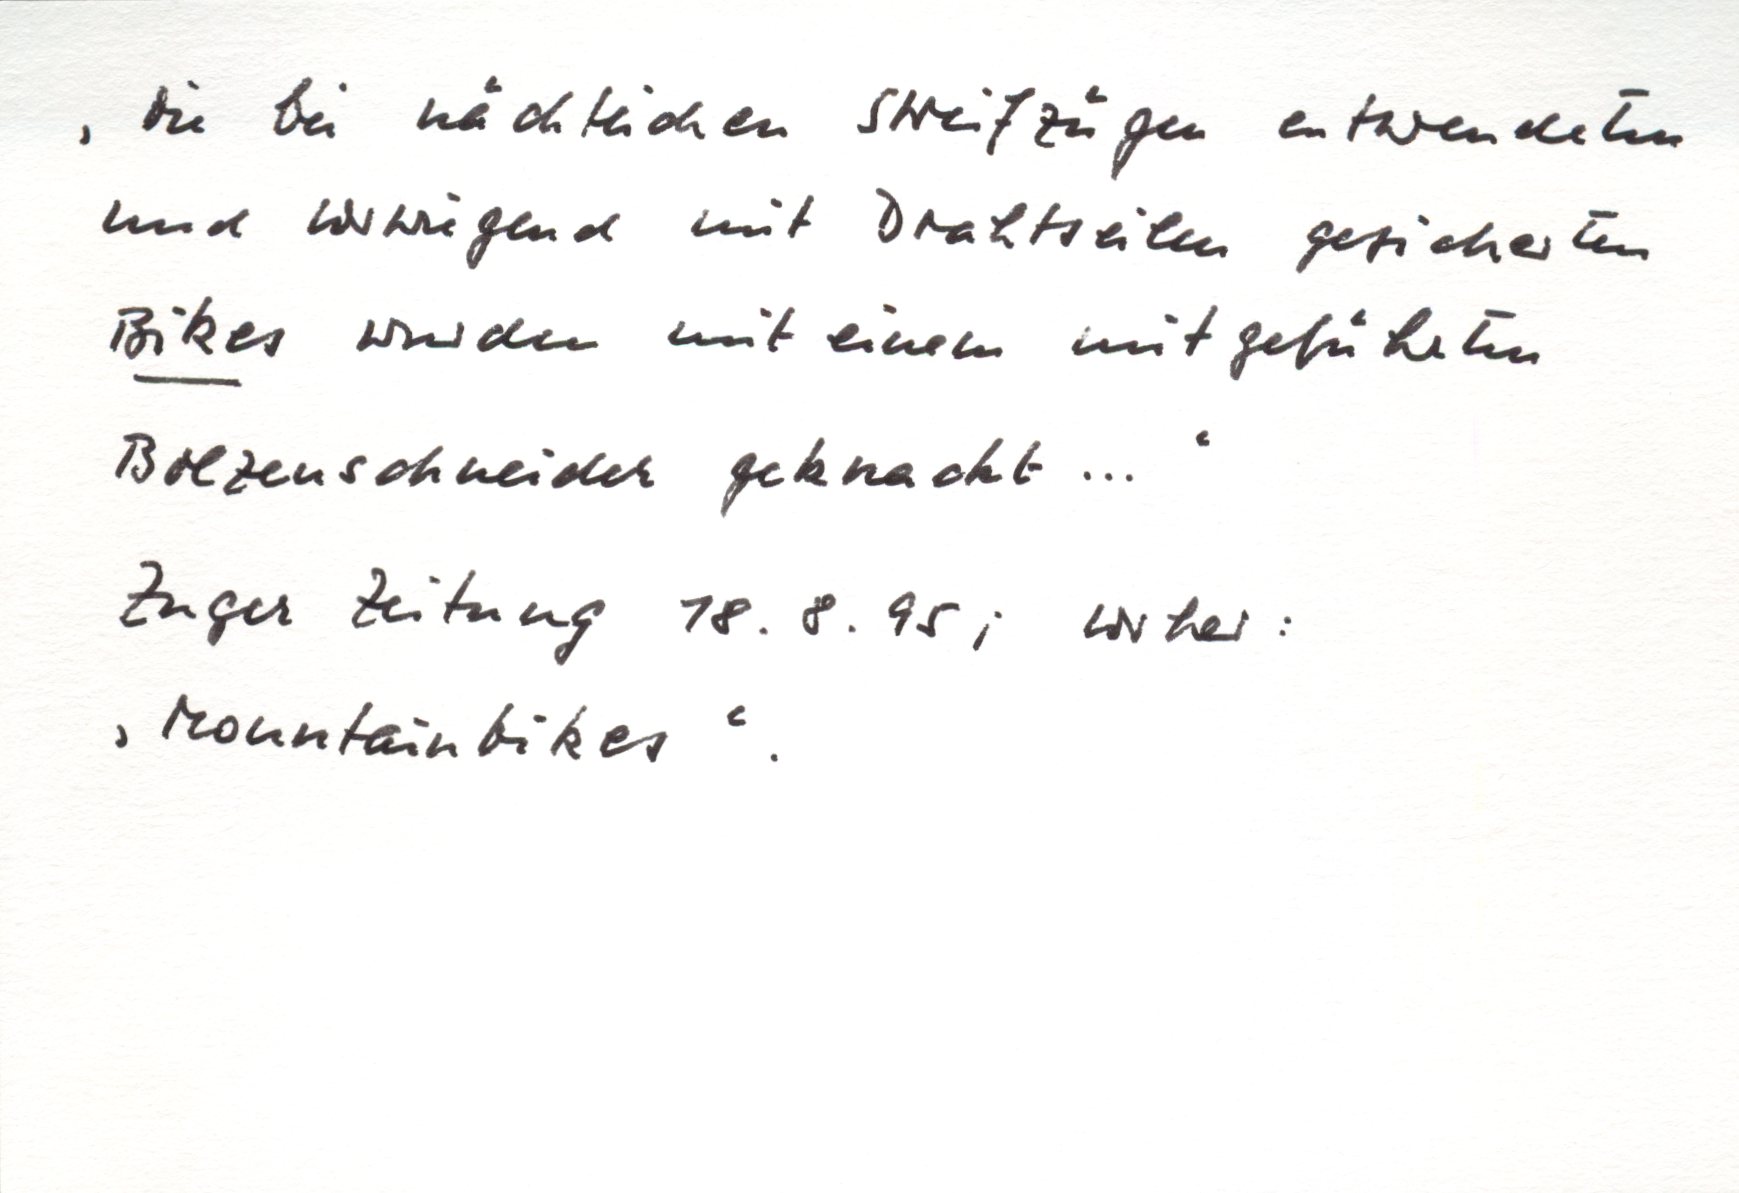 ‚Die bei nächtlichen Streifzügen entwendeten
und vorwiegend mit Drahtseilen gesicherten
Bikes wurden mit einem mitgeführten
Bolzenschneider geknackt ...‘
Zuger Zeitung 18. 8. 95; vorher:
‚Mountainbikes‘.